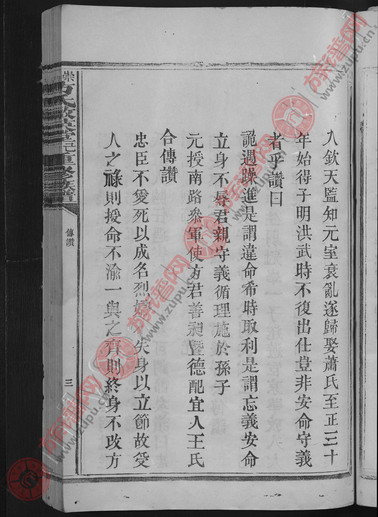 入欽天監知元室衰亂遂歸娶蕭氏至正三十
年始得子明洪武時不復出仕豈非安命守義
者乎讚曰
詭遇躁進是謂違命希時取利是謂忘義安命
立身不辱君親守義循理施於孫子
元授南路叅軍使方君善淵暨德配宜人王氏
合傳讚
忠臣不愛死以成名烈婦失身以立節故受
人之祿則授命不渝一與之齊則終身不改方
傳讚
三
族譜網
www.zupu.cn